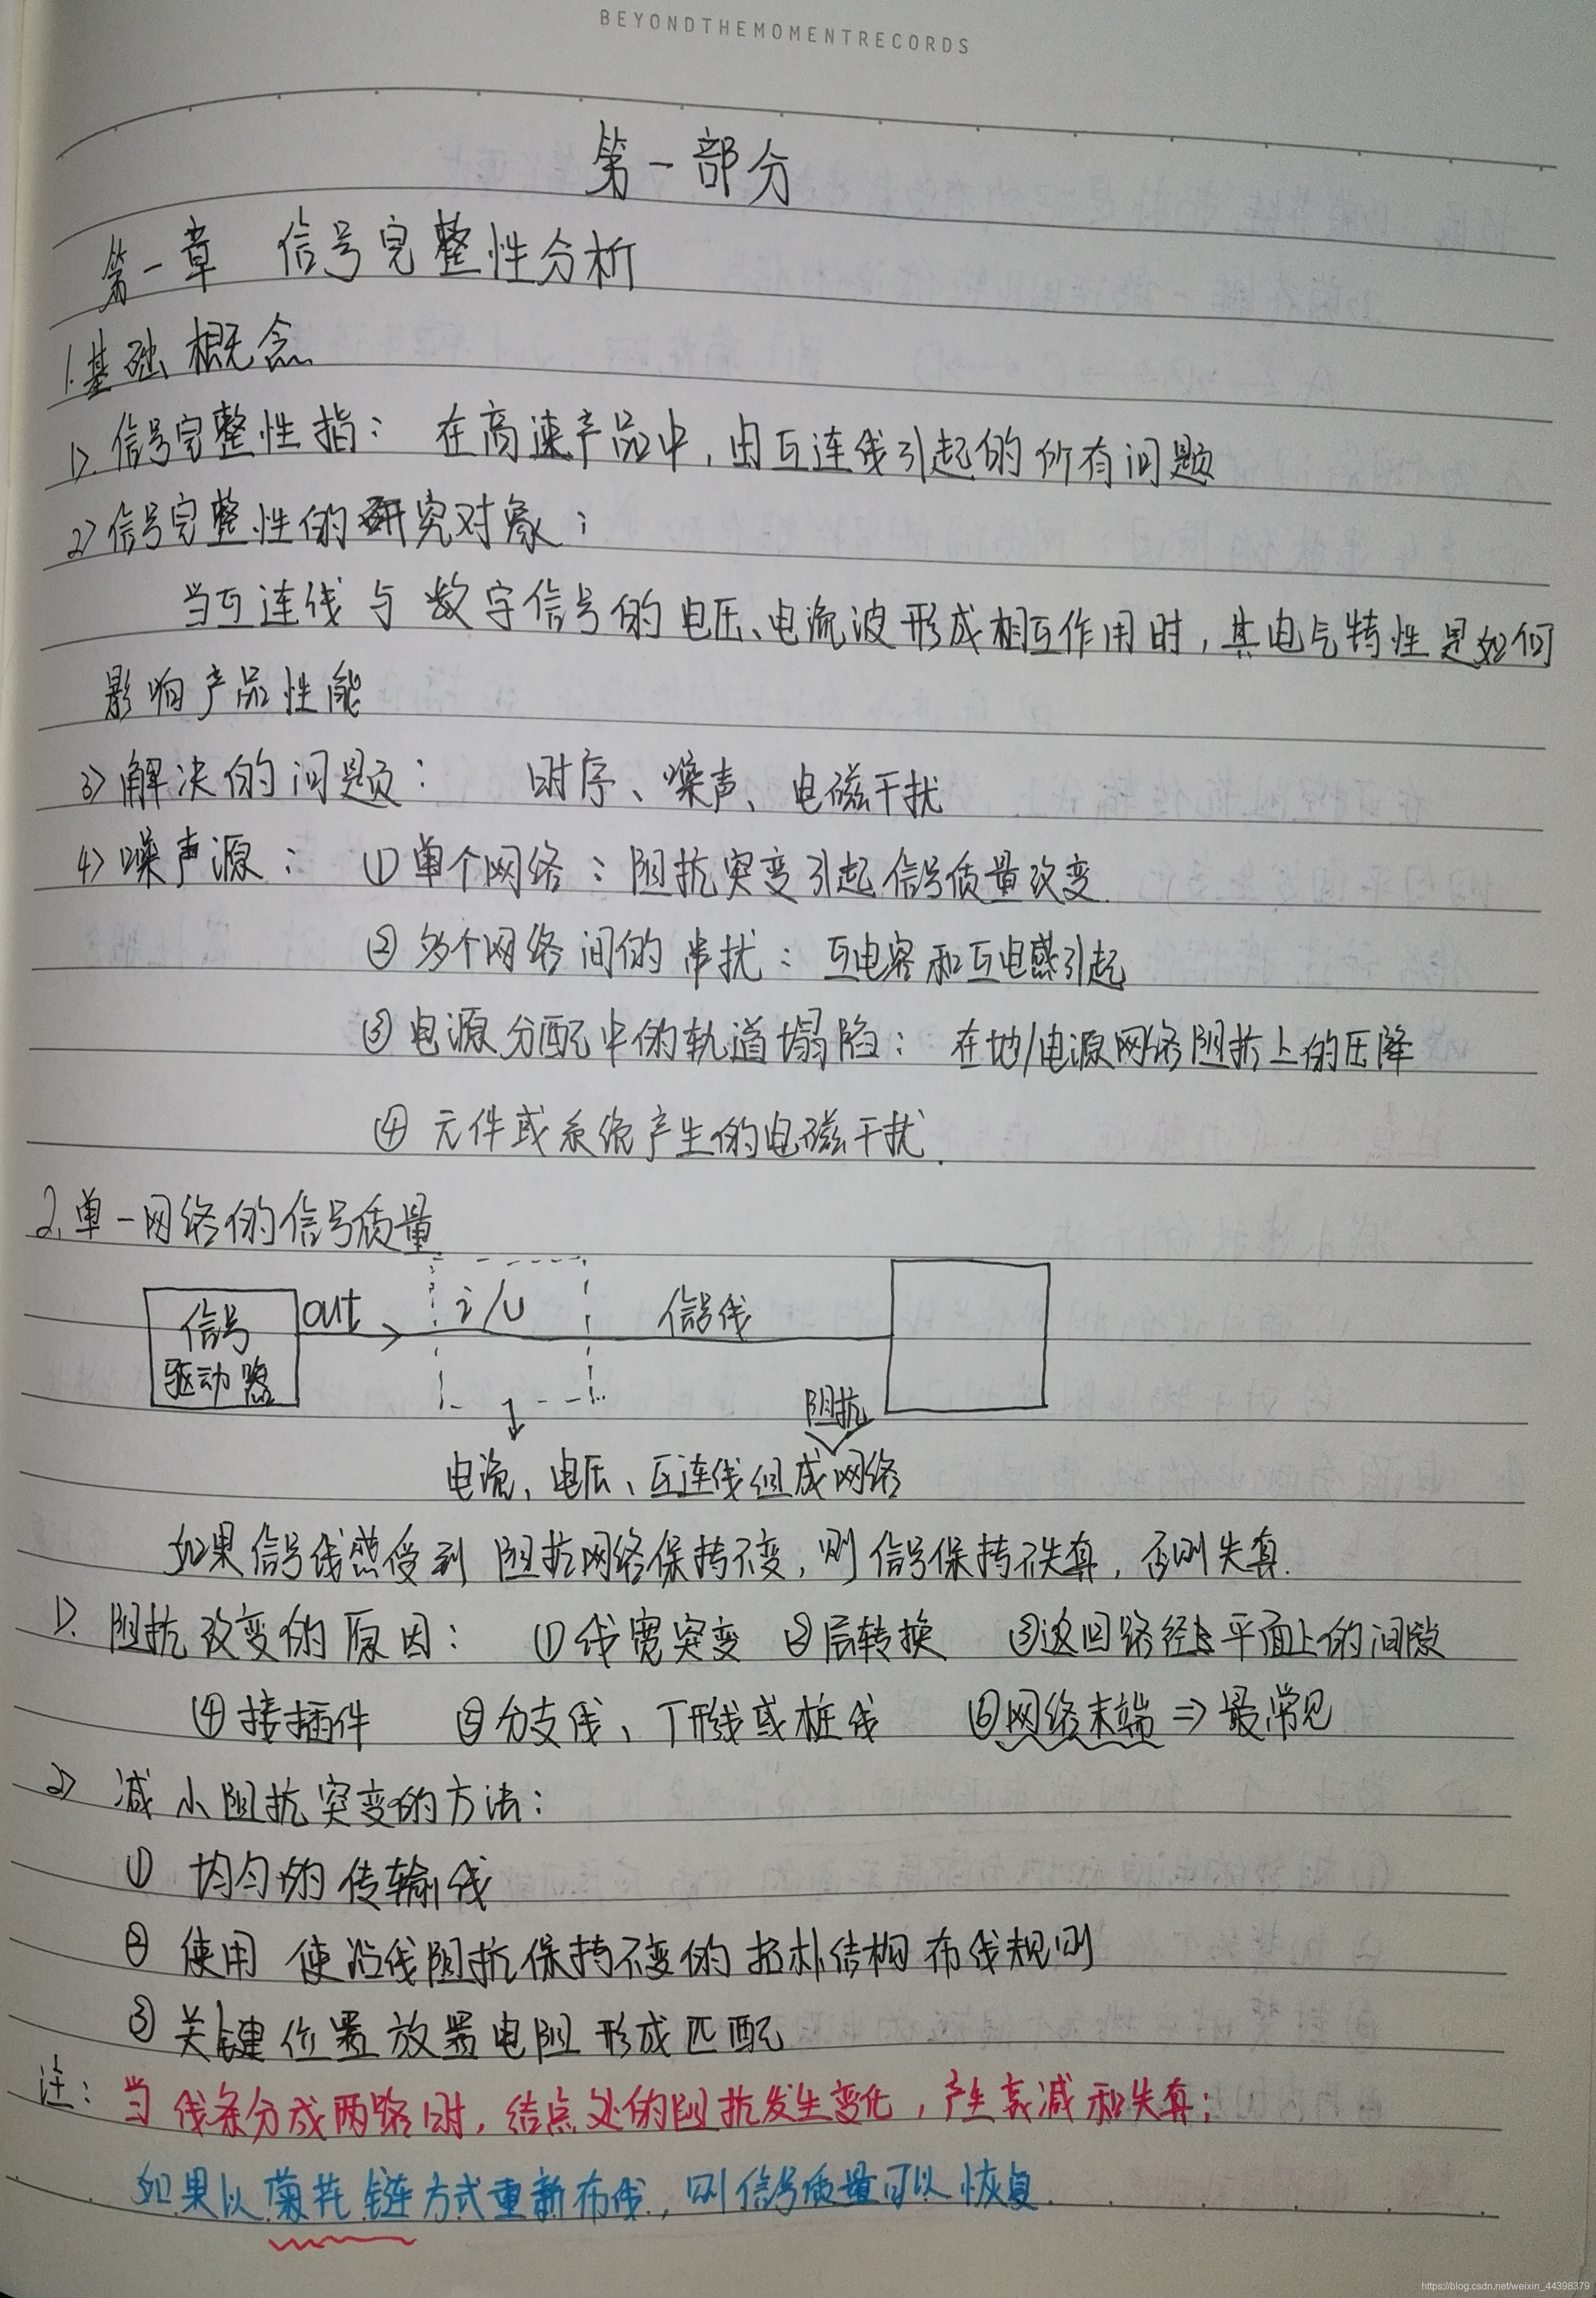 BEYONDTHEMOMENTRECORDS
第一部分
第一章 信号完整性分析
1.基础概念
1>.信号完整性指： 在高速产品中，由互连线引起的所有问题
2>信号完整性的研究对象：
当互连线与数字信号的电压、电流波形成相互作用时，其电气特性是如何
影响产品性能
3>解决的问题： 时序、噪声、电磁干扰
4>噪声源： ①单个网络：阻抗突变引起信号质量改变.
②多个网络间的串扰：互电容和互电感引起
③电源分配中的轨道塌陷： 在地/电源网络阻抗上的压降
④元件或系统产生的电磁干扰.
2.单一网络的信号质量
信号 out i/u 信号线
驱动器
阻抗
电流、电压、互连线组成网络
如果信号线感受到阻抗网络保持不变，则信号保持不失真，否则失真.
1>.阻抗改变的原因： ①线宽突变 ②层转换 ③返回路径上平面上的间隙
④接插件 ⑤分支线、T形线或桩线 ⑥网络末端⇒最常见
2> 减小阻抗突变的方法：
① 均匀的传输线
② 使用使沿线阻抗保持不变的拓朴结构布线规则
③关键位置放置电阻形成匹配
注：当线条分成两路时，结点处的阻抗发生变化，产生衰减和失真；
如果以菊花链方式重新布线，则信号质量可以恢复.
https://blog.csdn.net/weixin_44398379